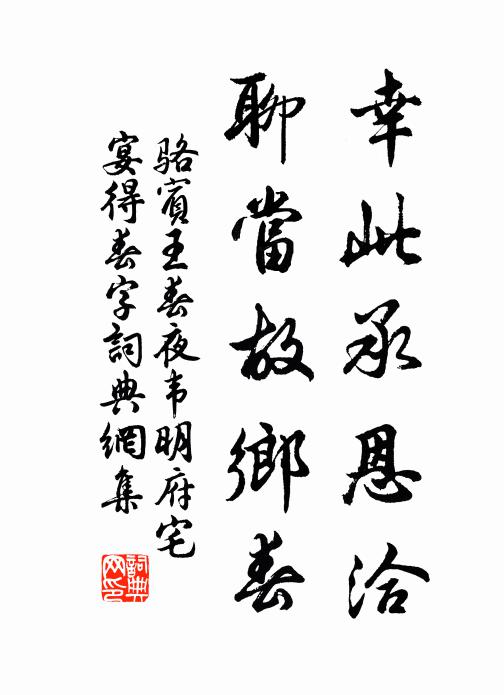 幸此承恩洽
聊當故鄉春
骆賓王春夜韦明府宅
宴得春字詞典網集
詞典
网印